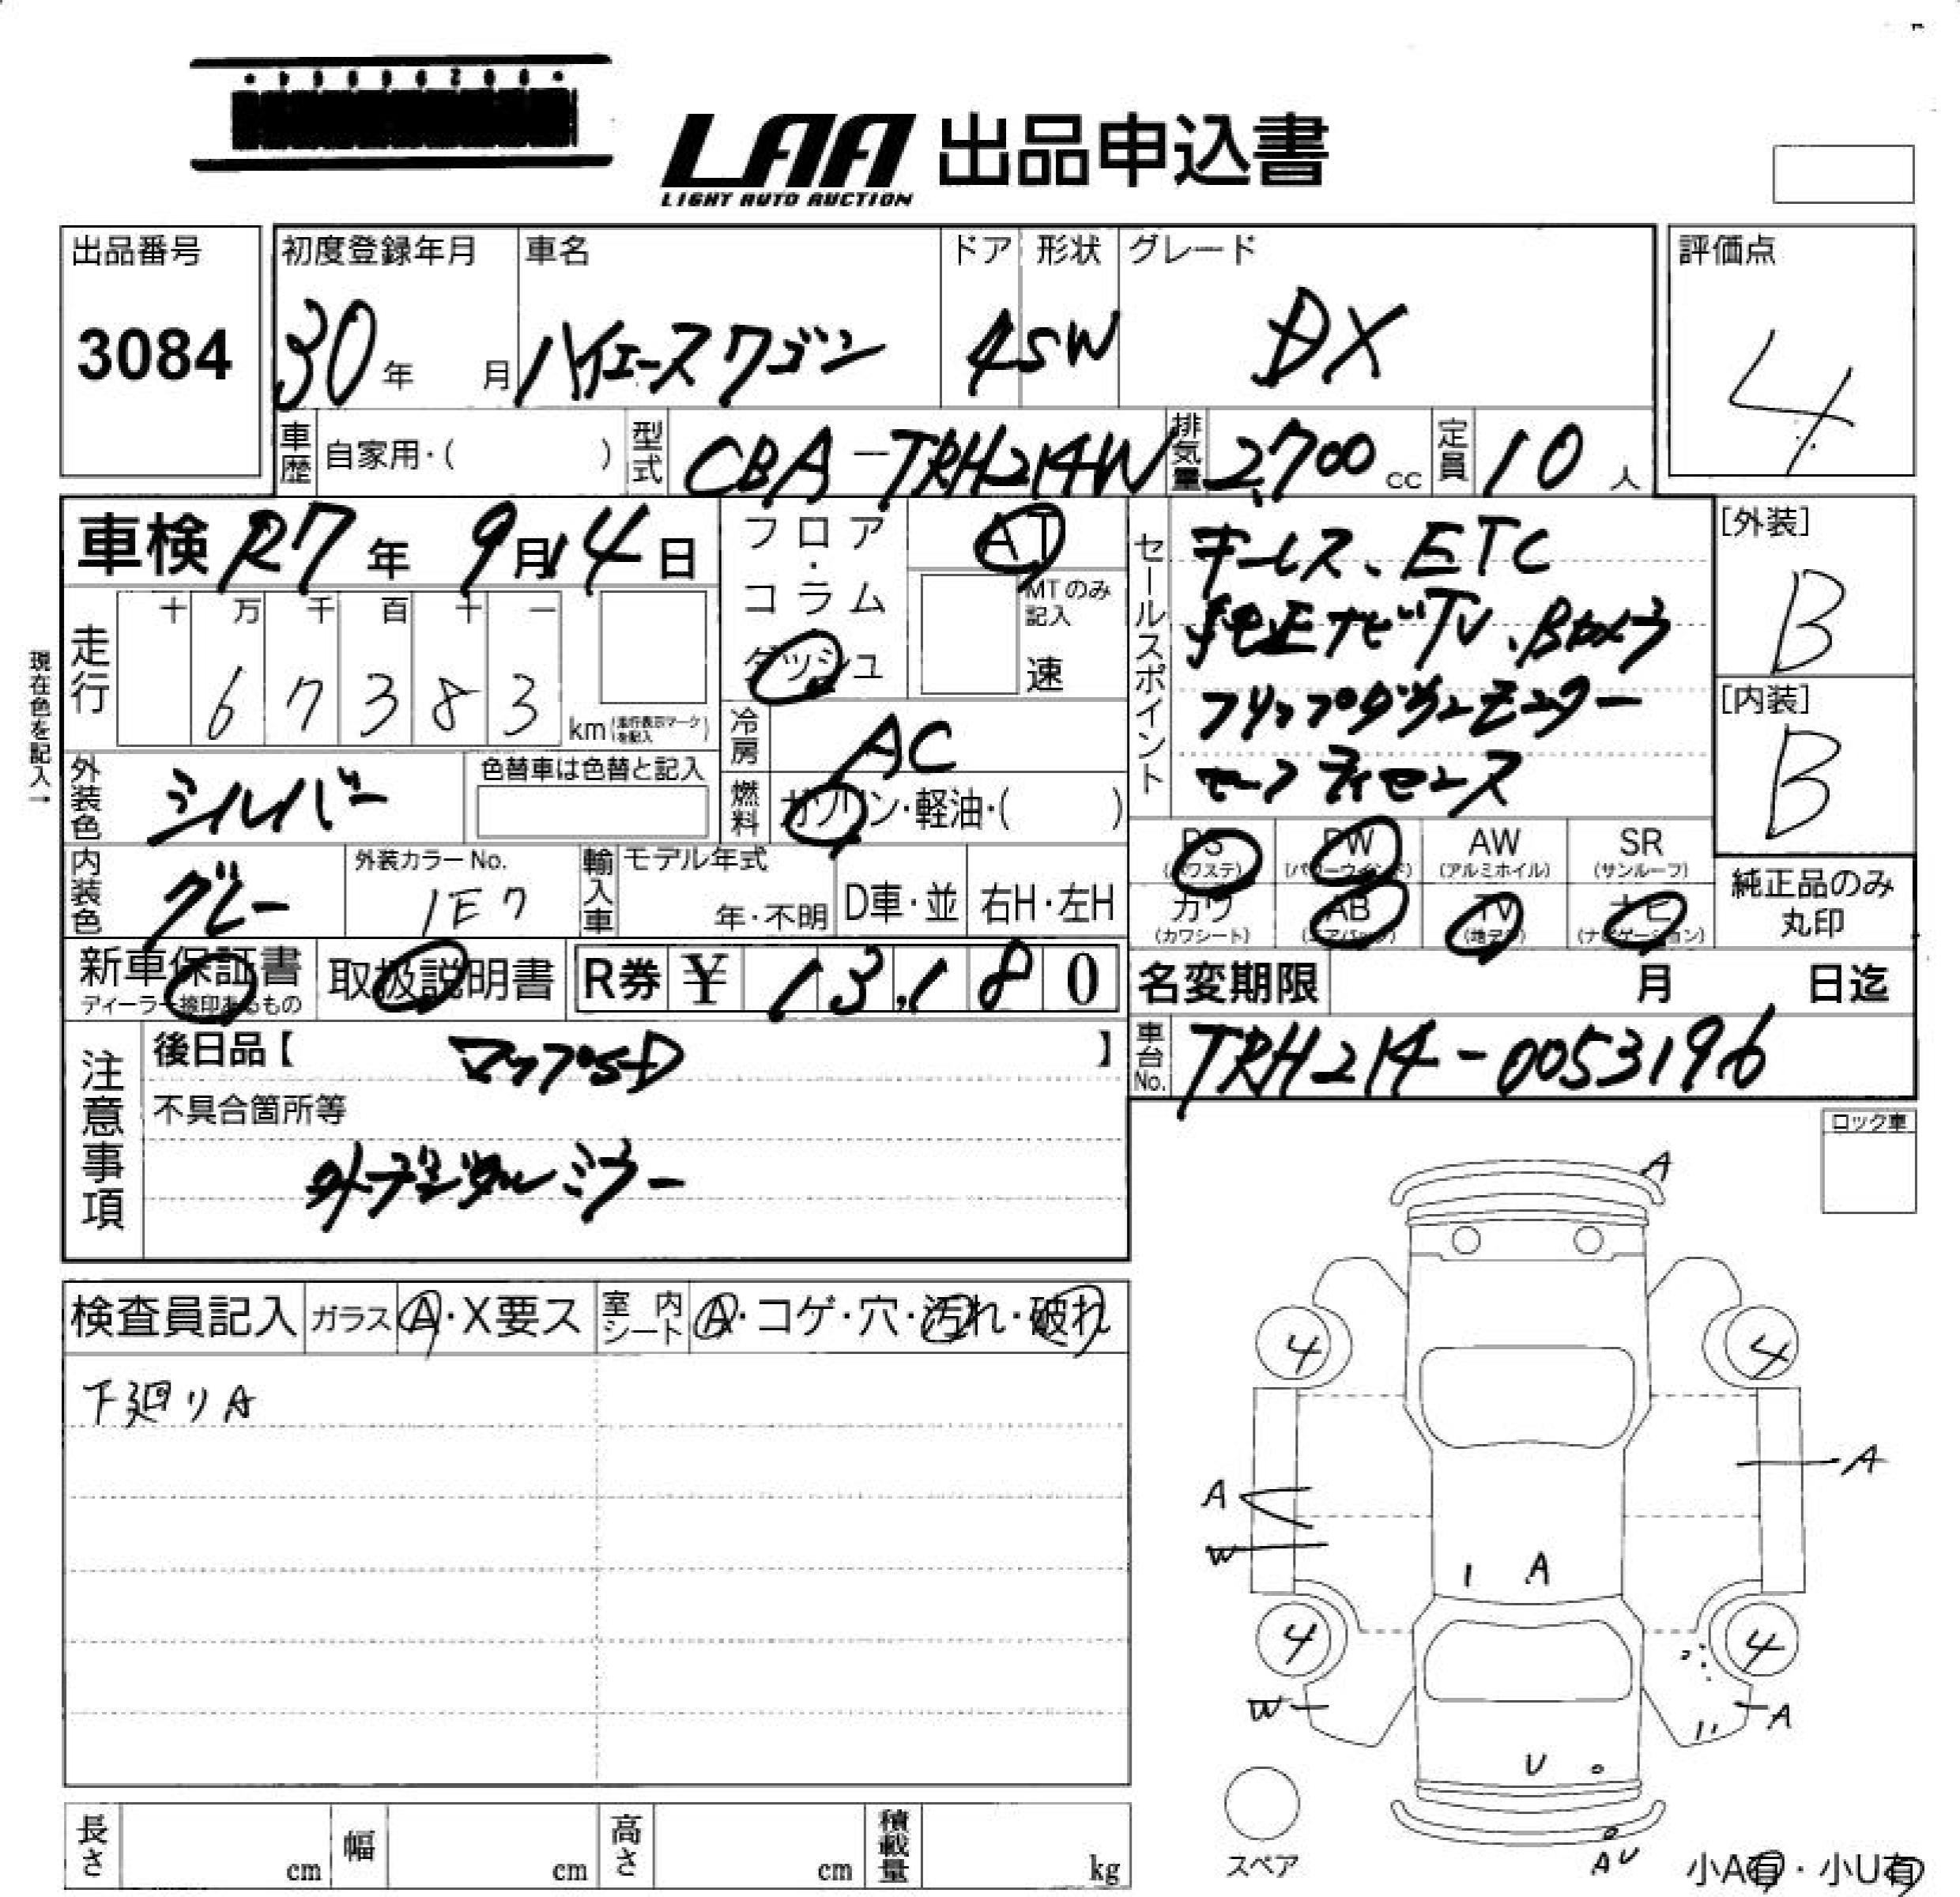 LAA 出品申込書
LIGHT AUTO AUCTION
出品番号
3084
初度登録年月
30年 月
車名
ハイエースワゴン
ドア
4
形状
SW
グレード
DX
評価点
4
車歴 自家用・( )
型式 CBA-TRH214W
排気量 2,700 cc
定員 10 人
車検 R7年 9月14日
フロア・コラム
ダッシュ
AT
MTのみ記入
速
セールスポイント
キーレス、ETC
純正ナビTV、Bカメラ
フリップダウンモニター
セーフティセンス
[外装]
B
[内装]
B
現在色を記入→
走行
十 万 千 百 十 一
6 7 3 8 3
km (走行表示マークを記入)
冷房 AC
外装色 シルバー
色替車は色替と記入
燃料 ガソリン・軽油・( )
内装色 グレー
外装カラーNo.
1E7
輸入車
モデル年式
年・不明
D車・並
右H・左H
PS (パワステ)
PW (パワーウィンド)
AW (アルミホイル)
SR (サンルーフ)
カワ (カワシート)
AB (エアバック)
TV (地デジ)
ナビ (ナビゲーション)
純正品のみ
丸印
新車保証書
ディーラー捺印あるもの
取扱説明書
R券 ¥ 13,180
名変期限 月 日迄
車台No. TRH214-0053196
注意事項
後日品【 マップSD 】
不具合箇所等
外デジタルミラー
ロック車
検査員記入
ガラス A・X要ス
室内シート A・コゲ・穴・汚れ・破れ
下廻りA
A
4 4
A
A
W
A
4 4
W
A
U
スペア
A U
小A有・小U有
長さ cm
幅 cm
高さ cm
積載量 kg